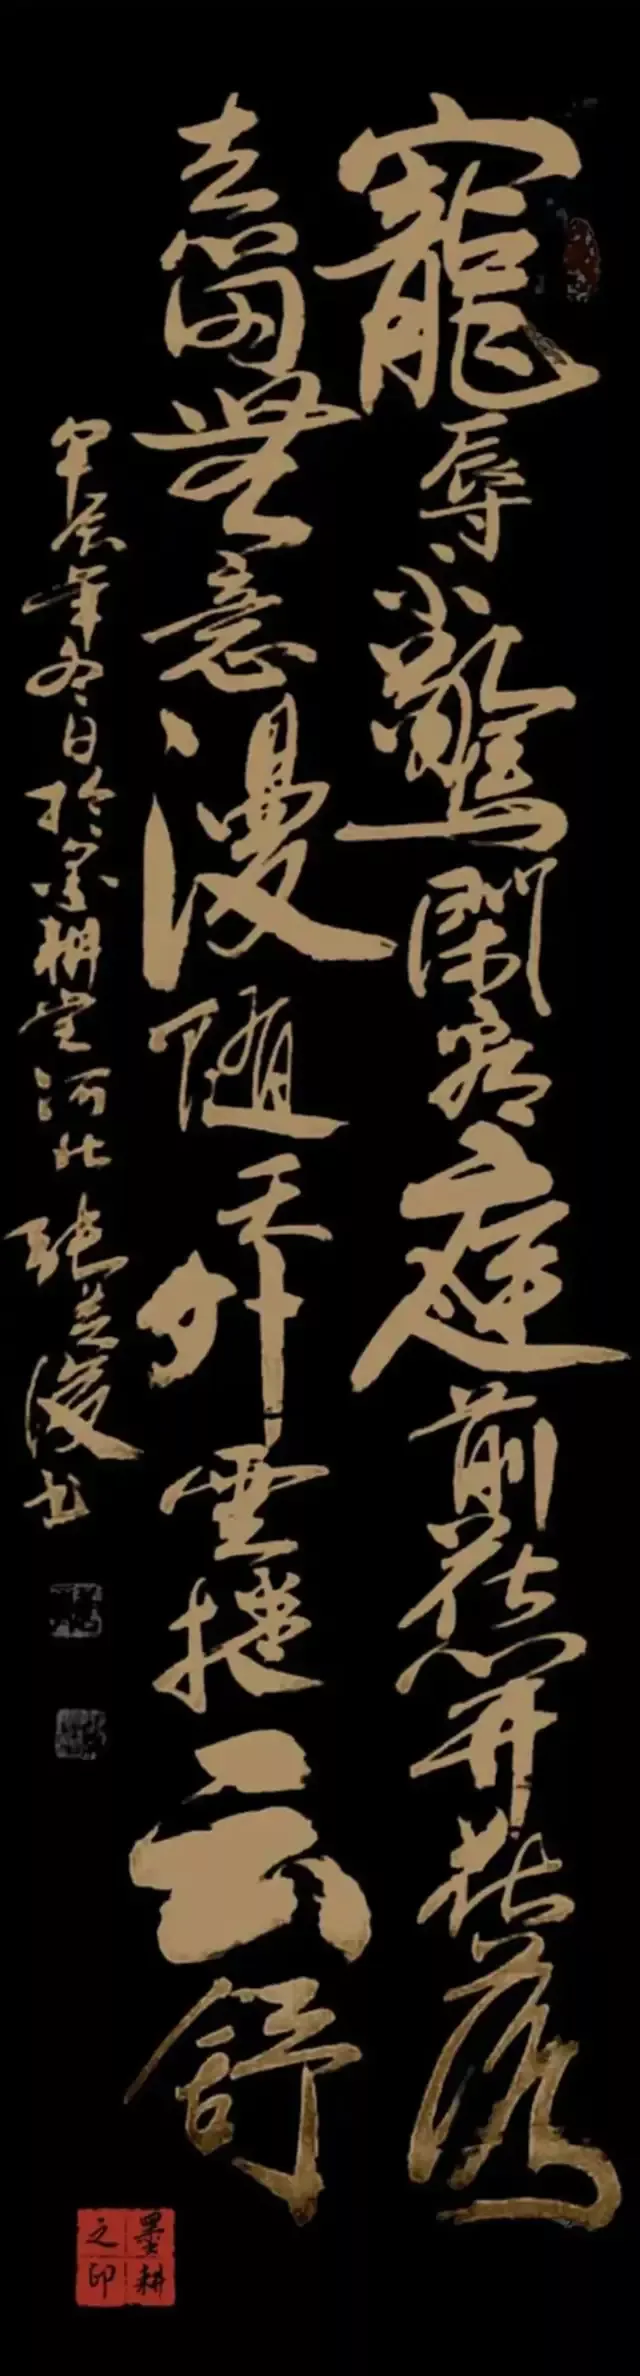 寵辱不驚閑看庭前花開花落
去留無意漫隨天外雲捲云舒
甲辰年冬日於墨耕堂河北張芝后书
墨耕之印